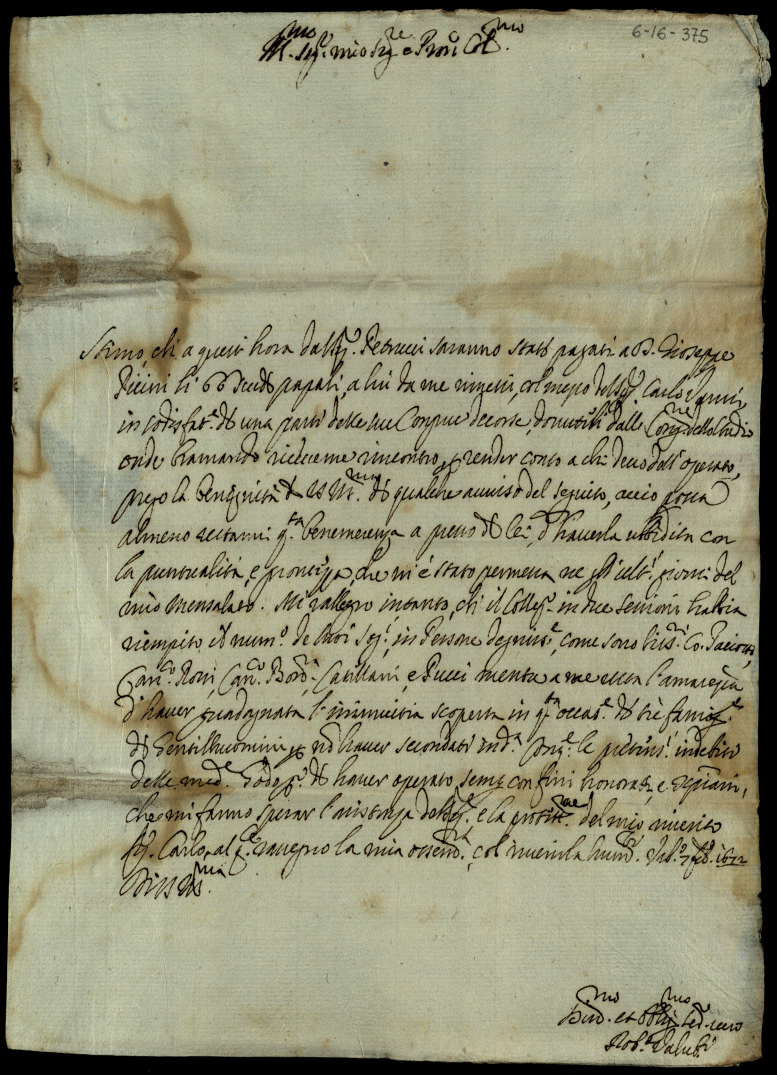 6-16-375
Ill.mo Sig.r mio Sig.re e Pron Col.mo
Stimo, ch a quest hora dal Sig. Petrucci saranno stati pagati a D. Gioseppe
Piccini li 66 scudi papali, a lui da me rimessi, col mezo del Sig. Carlo
in sodisfat.e di una parte delle sue Congrue decorse, dalla Cong.ne dello Studio
onde bramando riceverne rincontro, per render conto a chi devo dell'operato,
prego la benignità di VS Ill.ma di qualche avviso del seguito, acciò possa
almeno restarmi q.ta benemerenza a presso di lei, d'haverla ubbidita con
la puntualità, e prontezza, che mi è stato permessa ne gl'ult.i giorni del
mio Mensalato. Mi rallegro intanto, ch il Colleg.o in due sessioni habbia
riempito il num.o de suoi Sig.i in Persone degniss.e, come sono Co. Paciotti
Can.co Roni, Can.co Bord.i Catillani, e Pucci mentre a me resta l'amarezza
d'haver guadagnata l'inimicitia scoperta in q.ta occas.e di tre famig.e
di Gentilhuomini per nõ haver secondati le indebite
delle med.e Godo però di haver operato semp con fini honorati, e Xpiani,
che mi fanno sperar l'assistenza del Sig.e e la protett.ne del mio riverito
Sig. Carlo, al q.le rassegno la mia osserv.a, col riverirla hum.te 7 1672
Di VS Ill.ma
Hum.mo et Obblig.mo Ser.e vero
Rob.o